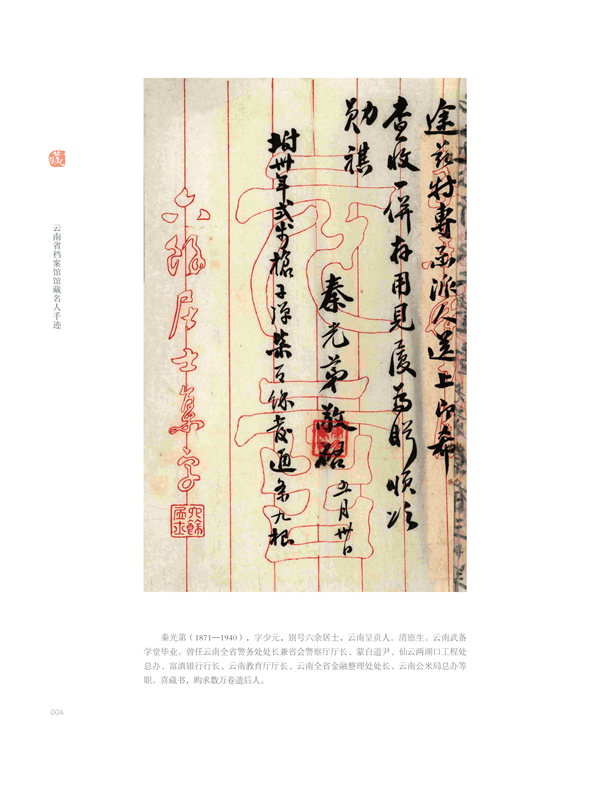 途兹特专函派人送上即希
查收一併存用見復為盼順頌
勛祺
秦光第敬啓
五月卅日
坿卅年式步槍子彈柒百餘發通条九根
六餘居士集字
六餘居士
云南省档案馆馆藏名人手迹
秦光第（1871—1940），字少元，别号六余居士，云南呈贡人。清廪生。云南武备
学堂毕业。曾任云南全省警务处处长兼省会警察厅厅长、蒙自道尹、仙云两湖口工程处
总办、富滇银行行长、云南教育厅厅长、云南全省金融整理处处长、云南公米局总办等
职。喜藏书，购求数万卷遗后人。
004